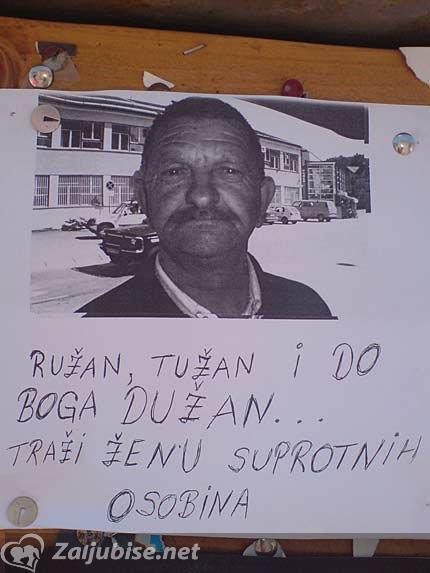 RUŽAN, TUŽAN I DO
BOGA DUŽAN...
TRAŽI ŽENU SUPROTNIH
OSOBINA
Zaljubise.net